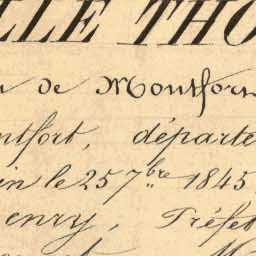 LLE THO
de Montfor
ntfort, départe
in le 25 7bre 1845
enry, Préfet